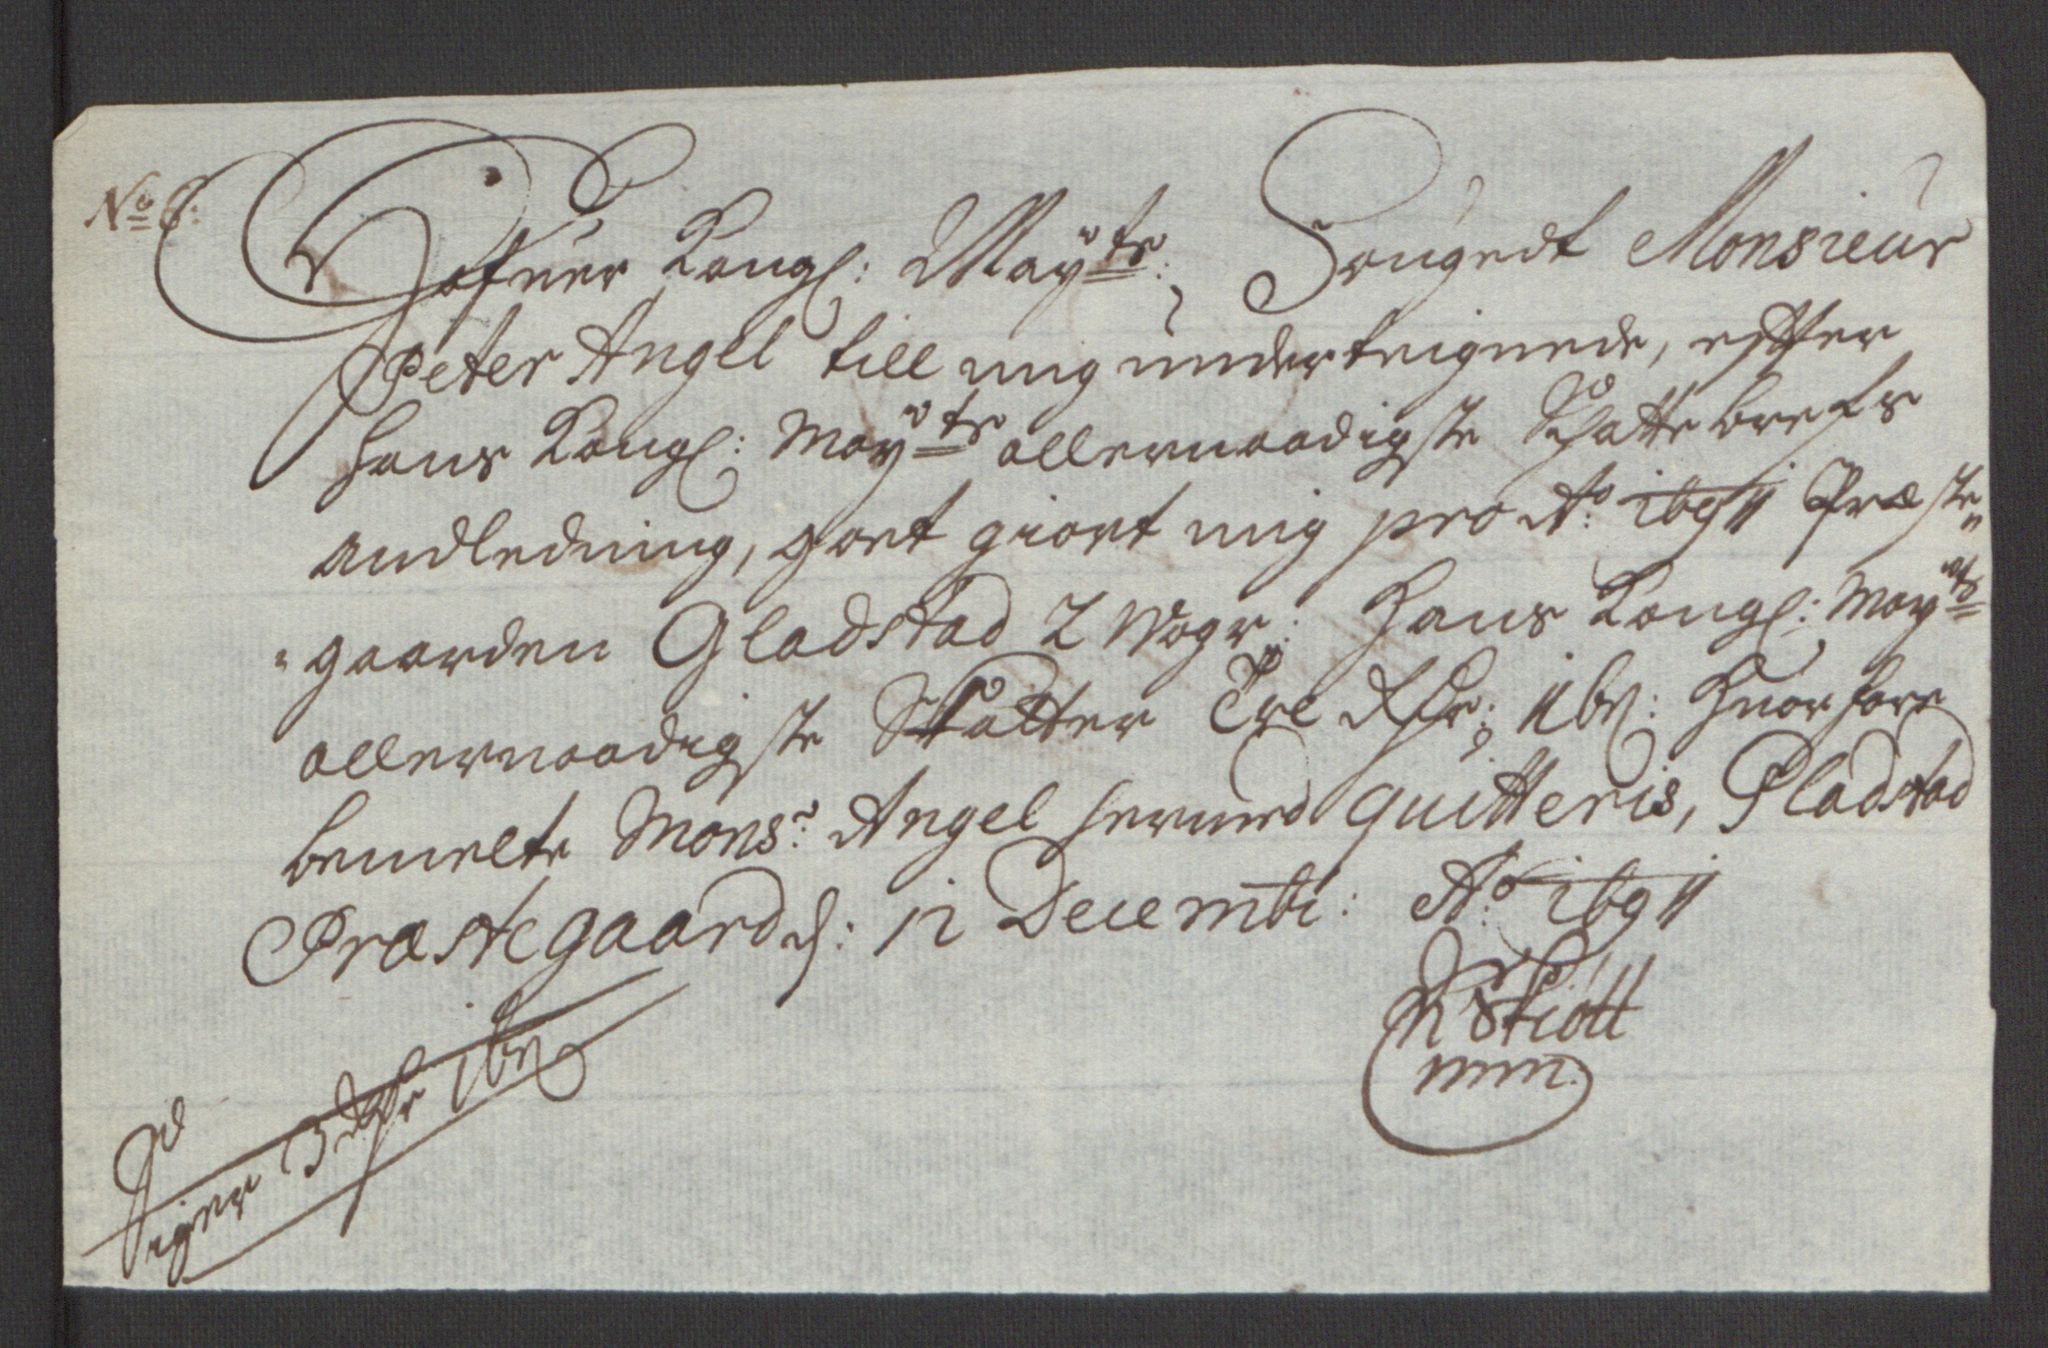 No 8:
Hafuer Kongl: Mayts: Fougedt Monsieur
Peter Angel till mig underteignede, effter
hans Kongl: Mayts allernaadigste Skatte brefs
andledning, giort mig pro Ao: 1694 Præste-
gaarden Gladstad 2 Wogr: Hans Kongl: Mayts
allernaadigste Skatter Tre Rdr: 16 s: Huorfore
bemelte Monsr: Angel hermed quitteris, Gladstad
Præstegaard d: 12 Decembr: Ao: 1694
Skiött
mm.
Siger 3 Rdr 16 s